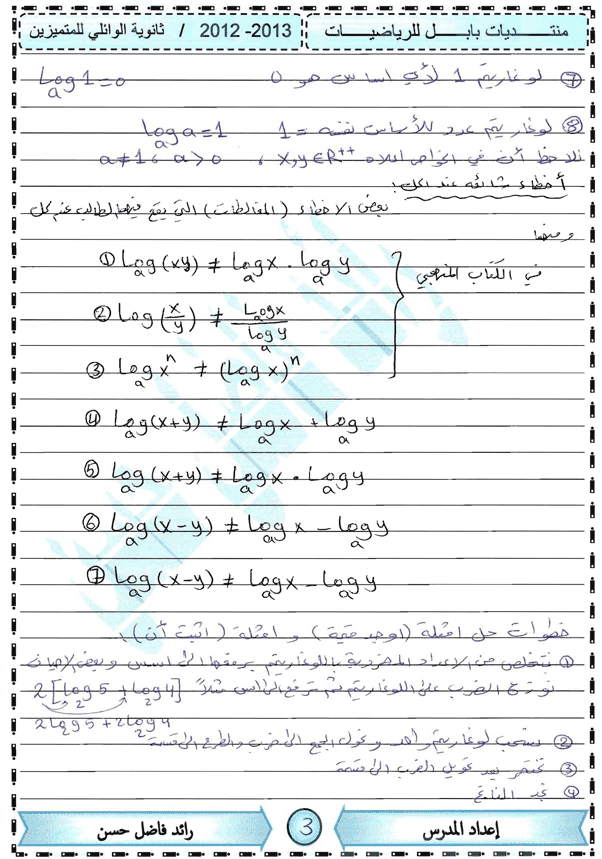 منتـــديات بابـــــل للرياضيـــات
2012 -2013 / ثانوية الوائلي للمتميزين
⑦ لوغاريتم 1 لأي اساس هو 0 Log_a 1 = 0
⑧ لوغاريتم عدد للأساس نفسه = 1 log_a a = 1
نلاحظ أن في الخواص اعلاه x,y∈R⁺⁺ ، a>0 ، a≠1
أخطاء شائعه عند الحل:
بعض الاخطاء (المغالطات) التي يقع فيها الطالب عند حل
ومنها
① Log_a (xy) ≠ Log_a x . Log_a y
في الكتاب المنهجي
② Log (x/y) ≠ Log_a x / Log_a y
③ Log_a x^n ≠ (Log_a x)^n
④ Log_a (x+y) ≠ Log_a x + Log_a y
⑤ Log_a (x+y) ≠ Log_a x . Log_a y
⑥ Log_a (x-y) ≠ Log_a x - Log_a y
⑦ Log_a (x-y) ≠ Log_a x - Log_a y
خطوات حل امثلة (اوجد قيمة) و امثلة (اثبت أن)
① نتخلص من الاعداد المضروبة باللوغاريتم برفعها الى اسس وبعض الاحيان
نوزع الضرب على اللوغاريتم ثم ترفع الى أسس مثلاً 2[Log_2 5 + Log_2 4]
2Log_2 5 + 2Log_2 4
② نسحب لوغاريتم واحد ونحول الجمع الى ضرب والطرح الى قسمة
③ نختصر بعد تحويل الضرب الى قسمة
④ نجد الناتج
إعداد المدرس
3
رائد فاضل حسن